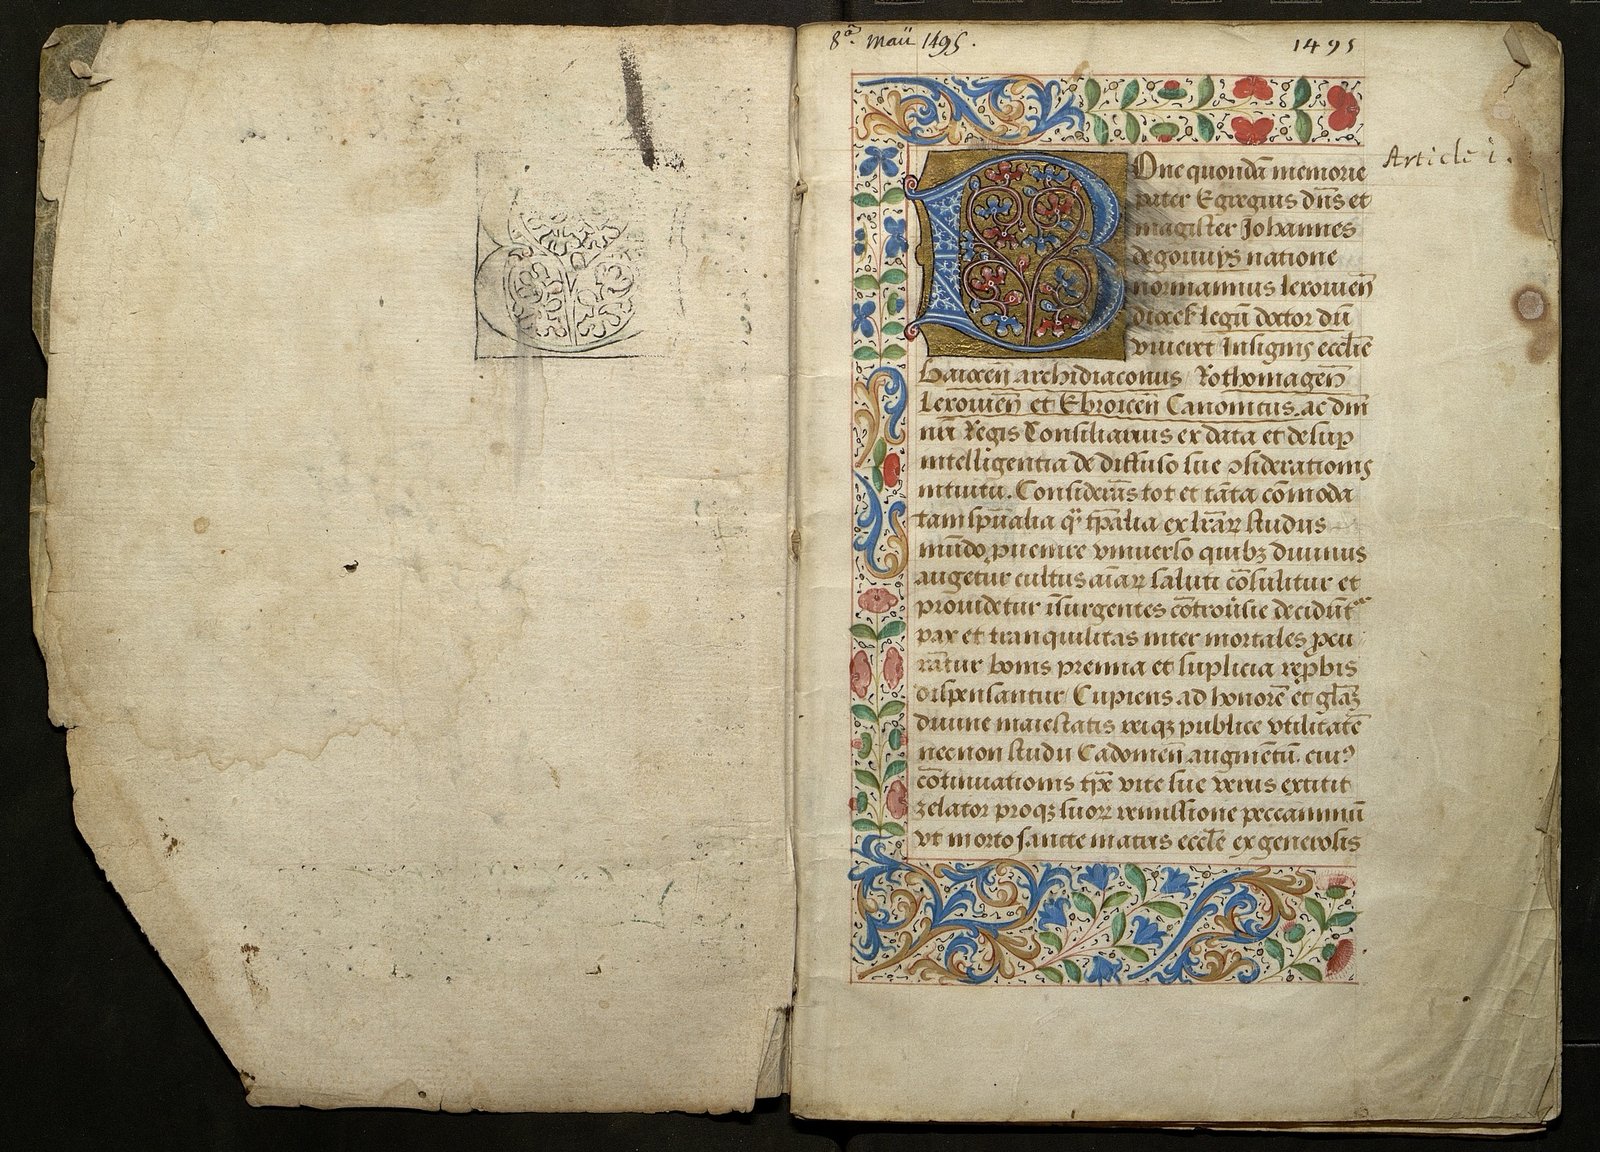 8ª. Maii 1495.
1495
Article 1.
Bone quondā memorie
pater Egregius dn̄s et
magister Johannes
degouvys natione
normannus lexouien̄
dioces legū doctor dū
viueret Insignis eccl̄ie
baiocen̄ archidiaconus Rothomagen̄
lexouien̄ et Ebroicen̄ Canonicus. ac dn̄i
nr̄i Regis Consiliarius ex data et desup
intelligentia de diffuso sue ↄsiderationis
intuitu. Considerās tot et tāta cōmoda
tam sp̄ualia q̄ tp̄alia ex lr̄arꝝ studiis
mūdo ꝓuenire vniuerso quibꝫ diuinus
augetur cultus aīarꝝ saluti cōsulitur et
prouidetur īsurgentes cōtrou̓sie decidūt
pax et tranquilitas inter mortales ꝓcu
rātur bonis premia et suplicia reꝓbis
dispensantur Cupiens ad honorē et gl̄iaꝫ
diuine maiestatis reiqꝫ publice vtilitatē
necnon studii Cadomen̄ augmētū. cuiꝰ
cōtinuationis tp̄e vite sue verus extitit
zelator proqꝫ suoꝝ remissione peccaminū
vt in orto sancte matris eccl̄ie ex generosis